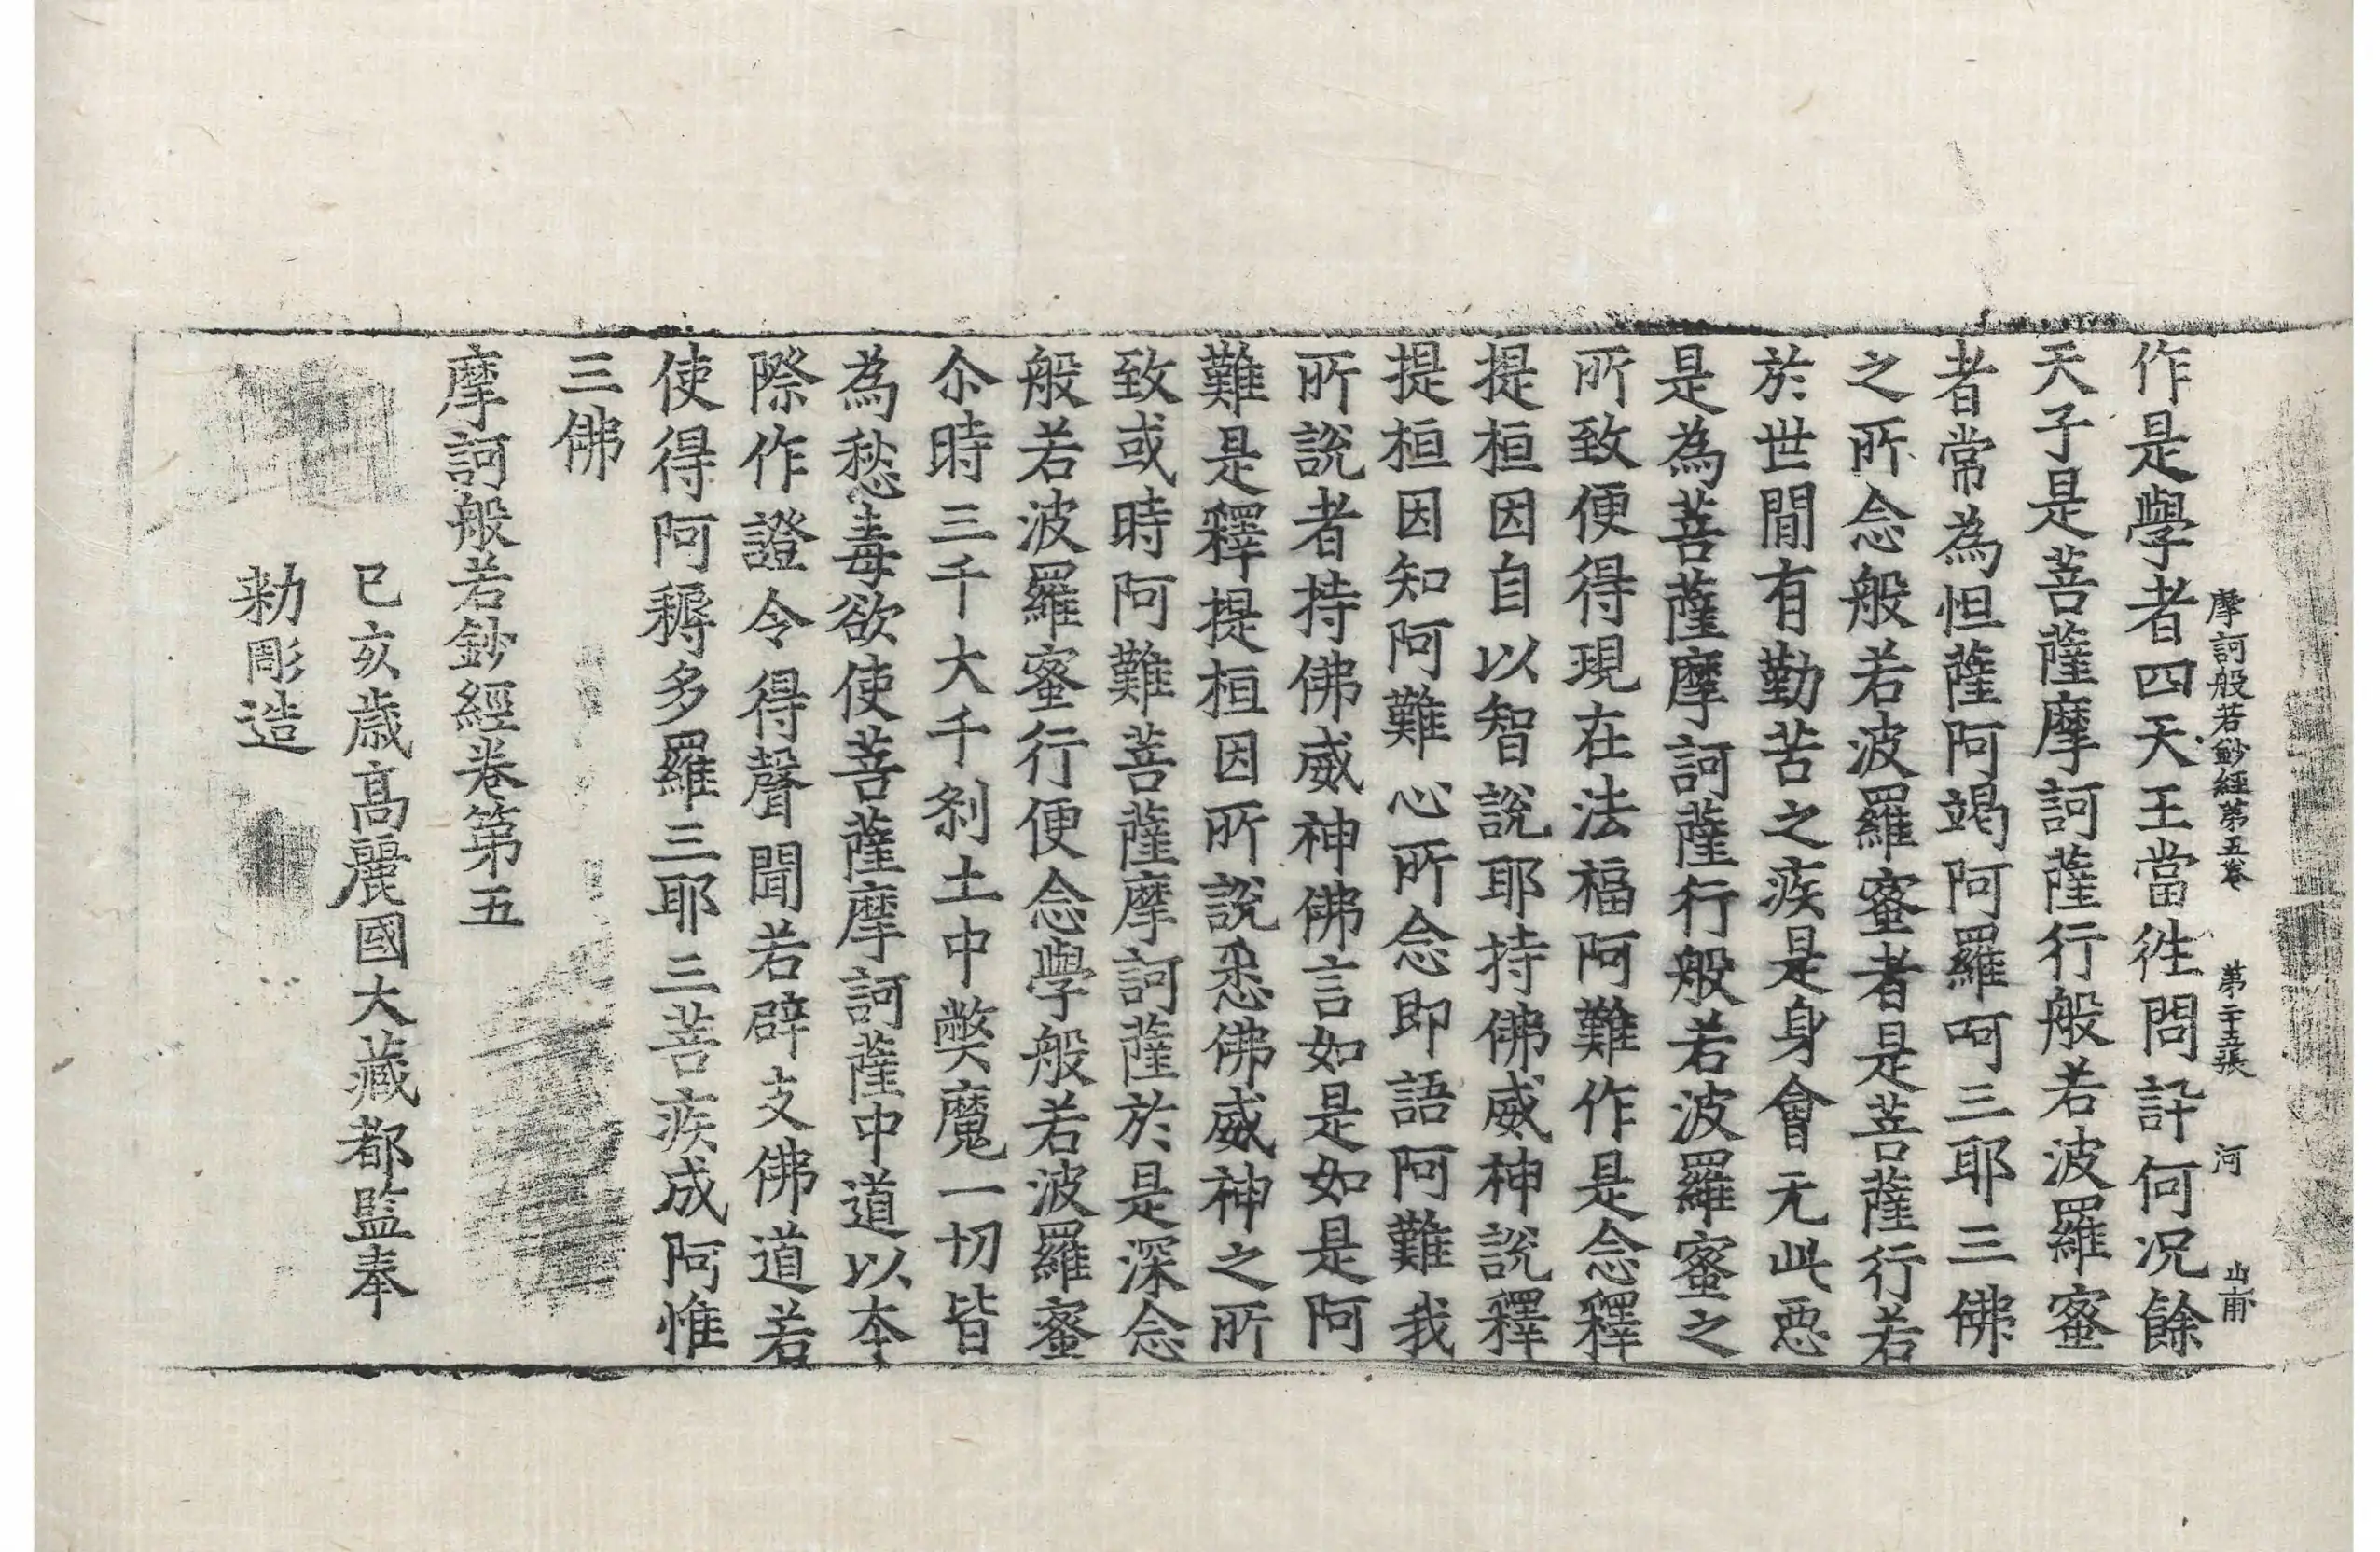 摩訶般若鈔經第五卷　第二十五張　河
作是學者四天王當往問訊何况餘
天子是菩薩摩訶薩行般若波羅蜜
者常為怛薩阿竭阿羅呵三耶三佛
之所念般若波羅蜜者是菩薩行若
於世間有勤苦之疾是身會无此惡
是為菩薩摩訶薩行般若波羅蜜之
所致便得現在法福阿難作是念釋
提桓因自以智說耶持佛威神說釋
提桓因知阿難心所念即語阿難我
所說者持佛威神佛言如是如是阿
難是釋提桓因所說悉佛威神之所
致或時阿難菩薩摩訶薩於是深念
般若波羅蜜行便念學般若波羅蜜
尒時三千大千剎土中弊魔一切皆
為愁毒欲使菩薩摩訶薩中道以本
際作證令得聲聞若辟支佛道若
使得阿耨多羅三耶三菩疾成阿惟
三佛
摩訶般若鈔經卷第五
已亥歲高麗國大藏都監奉
勑彫造